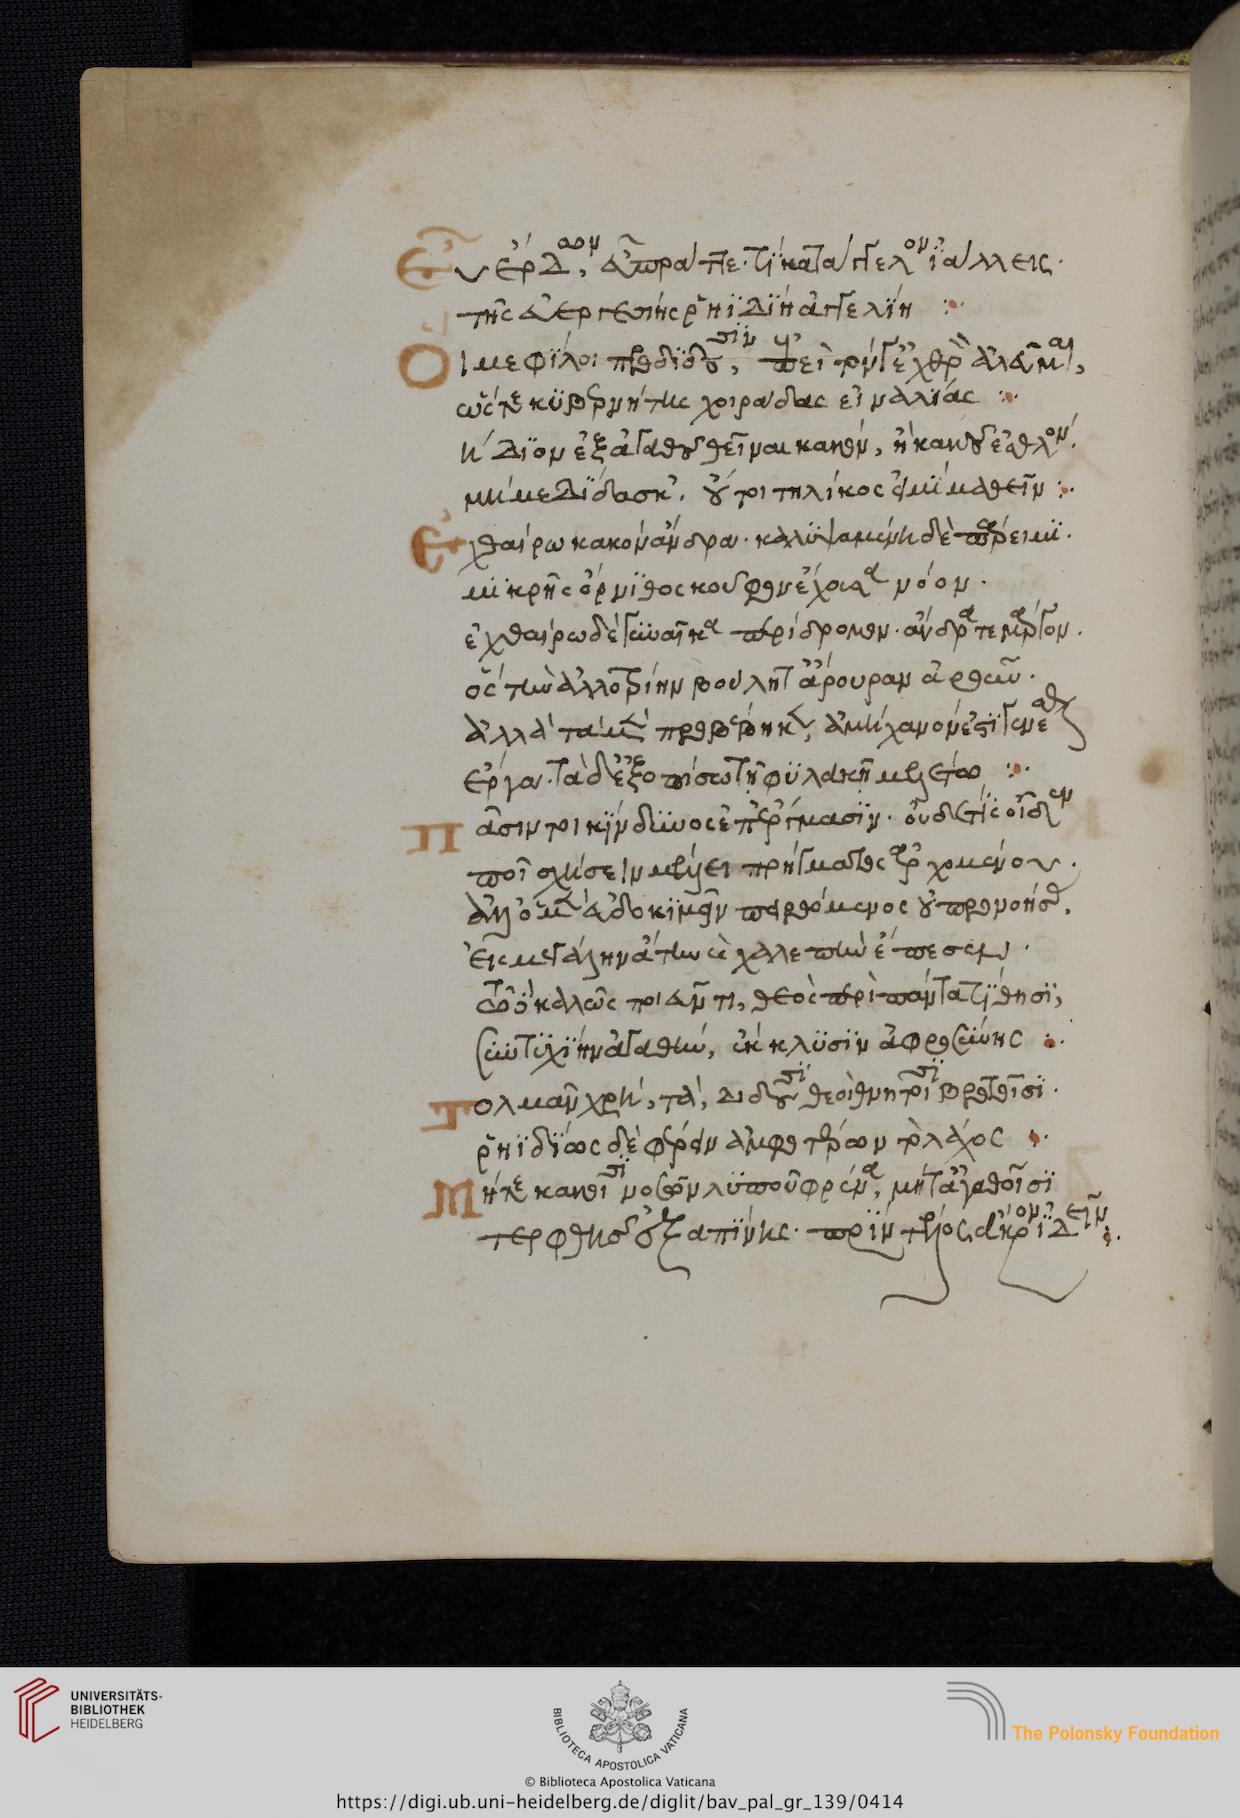 Εὖ ἔρδων, εὖ ὥρα πε· τί κατάγγελον ἰάλλεις·
τῆς εὐεργεσίης ῥηϊδίη ἀγγελίη :·
Οἵ με φίλοι προδιδοῦσιν, ἐπεὶ τόν γ' ἐχθρὸν ἀλεῦμαι,
ὥς τε κυβερνήτης χοιράδας εἰναλίας :·
ἢ δῖον ἐξ ἀγαθοῦ θεῖναι κακὸν, ἢ κακοῦ ἐσθλόν·
μή με δίδασκ'. οὔ τοι τηλίκος εἰμὶ μαθεῖν :·
Ἐχθαίρω κακὸν ἄνδρα· καλυψαμένη δὲ πάρειμι·
μικρῆς ὄρνιθος κοῦφον ἔχουσα νόον·
ἐχθαίρω δὲ γυναῖκα περίδρομον· ἄνδρα τε μάργον·
ὅς τὴν ἀλλοτρίην βούλητ' ἄρουραν ἀροῦν·
ἀλλὰ τὰ μὲν προβέβηκεν, ἀμήχανόν ἐστι γενέσθαι
ἔργα· τὰ δ' ἐξοπίσω τῇ φυλακῇ μελέτω :·
Πᾶσίν τοι κίνδυνος ἐπ' ἔργμασιν· οὐδέ τις οἶδεν
ποῖ σχήσειν μέλλει πρήγματος ἀρχομένου·
ἀλλ' ὁ μὲν εὐδοκιμεῖν πειρώμενος οὐ προνοήσας,
εἰς μεγάλην ἄτην καὶ χαλεπὴν ἔπεσεν·
τῷ δὲ καλῶς ποιεῦντι, θεὸς περὶ πάντα τίθησι,
συντυχίην ἀγαθήν, ἔκκλυσιν ἀφροσύνης :·
Τολμᾶν χρή, τά, διδοῦσι θεοὶ θνητοῖσι βροτοῖσι·
ῥηϊδίως δὲ φέρειν ἀμφοτέρων τὸ λάχος :·
Μήτε κακοῖσι νοσῶν λυποῦ φρένα, μήτ' ἀγαθοῖσι
τερφθῇς ἐξαπίνης· πρὶν τέλος ἄκρον ἰδεῖν :·
UNIVERSITÄTS-
BIBLIOTHEK
HEIDELBERG
BIBLIOTECA APOSTOLICA VATICANA
The Polonsky Foundation
© Biblioteca Apostolica Vaticana
https://digi.ub.uni-heidelberg.de/diglit/bav_pal_gr_139/0414